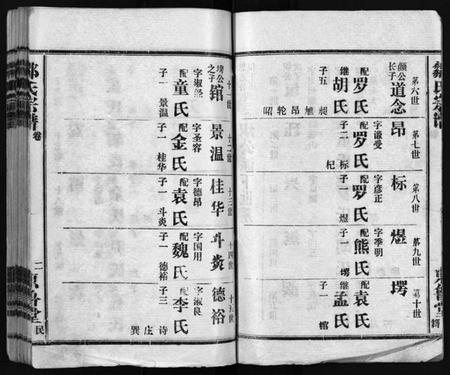 第六世
颜公长子
道念
配罗氏
继胡氏
子五 昶 旭 昂 轮 昭
第七世
昂
字谦受
配罗氏
子二 标 杞
第八世
标
字彦正
配罗氏
子一 煜
第九世
煜
字季明
配熊氏
子一 墁
第十世
墁
配袁氏
继孟氏
子一 馆
十一世
墁公之子
馆
字淑兰
配童氏
子一 景温
十二世
景温
字圣容
配金氏
子一 桂华
十三世
桂华
字德昂
配袁氏
子一 斗炎
十四世
斗炎
字国用
配魏氏
子一 德裕
十五世
德裕
字淑良
配李氏
子三 诗 庄 巽
氏宗谱
卷
二
民